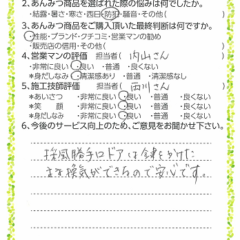 2.あんみつ商品を選ばれた際の悩みは何でしたか。
・結露・暑さ・寒さ・西日・防犯・騒音・その他( )
3.あんみつ商品をご購入頂いた最終判断は何ですか。
・性能・ブランド・クチコミ・営業マンの勧め
・販売店の信用・その他( )
4.営業マンの評価 担当者( 内山さん )
・非常に良い ・良い ・普通 ・良くない
*身だしなみ ・清潔感あり ・普通 ・清潔感なし
5.施工技師評価 担当者( 西川さん )
*あいさつ ・非常に良い ・良い ・普通 ・良くない
*笑 顔 ・非常に良い ・良い ・普通 ・良くない
*身だしなみ ・非常に良い ・良い ・普通 ・良くない
6.今後のサービス向上のため、ご意見をお聞かせ下さい。
採風勝手口ドアは鍵をかけた
まま換気ができるので安心です。